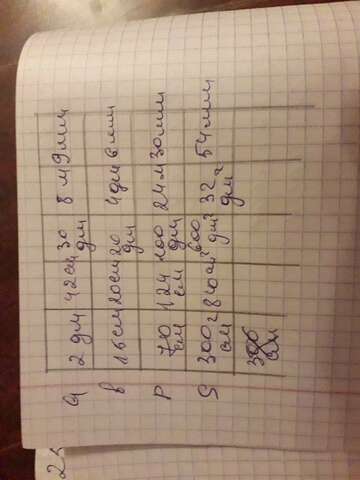 a 2 дм 42 см 30 дм 8 м 9 мм
b 16 см 20 см 20 дм 4 дм 6 мм
P 70 см 124 см 100 дм 24 м 30 мм
S 300 см² 840 см² 600 дм² 32 дм² 54 мм